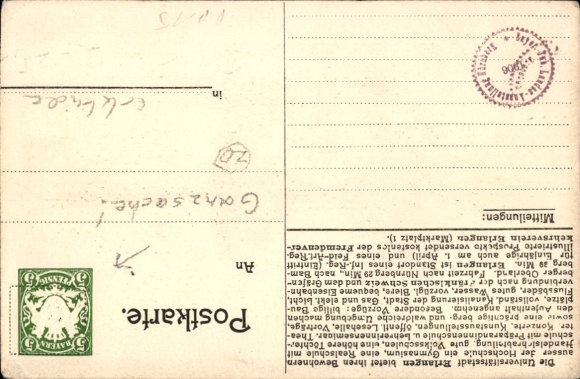 Die Universitätsstadt Erlangen bietet ihren Bewohnern
ausser der Hochschule ein Gymnasium, eine Realschule mit
Handelsabteilung, gute Volksschulen, eine höhere Töchter-
schule mit Präparandinnenschule u. Lehrerinnenseminar. Thea-
ter, Konzerte, Kunstausstellungen, öffentl. Lesehalle, Vorträge,
sowie eine prächtige berg- und waldreiche Umgebung machen
den Aufenthalt angenehm. Besondere Vorzüge: Billige Bau-
plätze, vollständ. Kanalisierung der Stadt, Gas und elekt. Licht,
Flussbäder, gutes Wasser, vorzügl. Biere, bequeme Eisenbahn-
verbindung nach der Fränkischen Schweiz und dem Gräfen-
berger Oberland. Fahrzeit nach Nürnberg 29 Min., nach Bam-
berg 39 Min. Erlangen ist Standort eines Inf.-Reg. (Eintritt
für Einjährige auch am 1. April) und eines Feld-Art.-Reg.
Illustrierte Prospekte versendet kostenlos der Fremdenver-
kehrsverein Erlangen (Marktplatz 1).
Mitteilungen:
Postkarte.
BAYERN
5 PFENNIG 5
An
Ganzsache!
20
in
1906